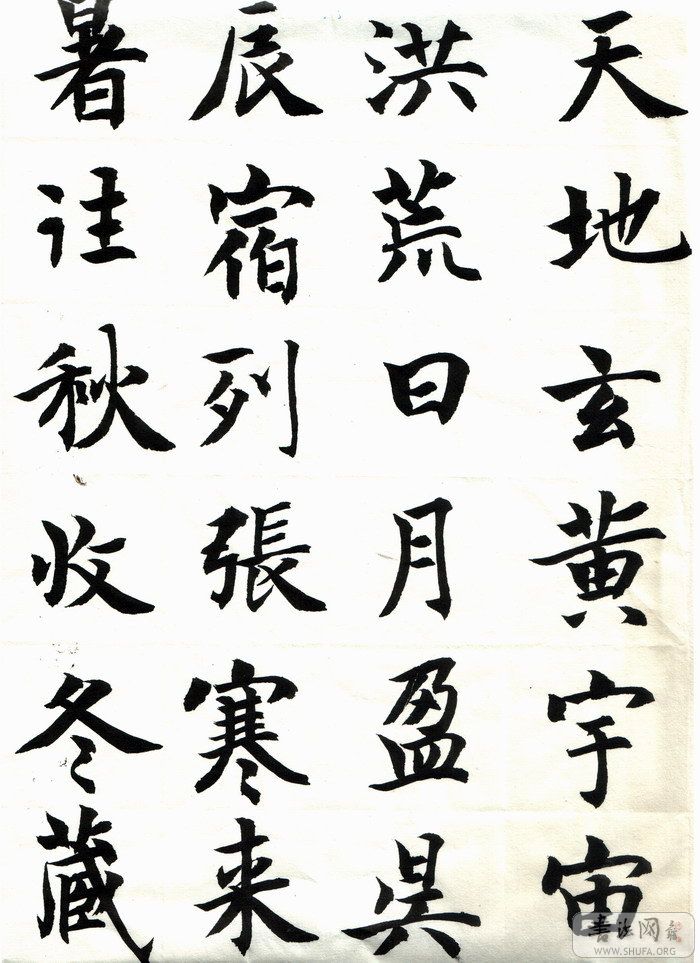 天地玄黄宇宙
洪荒日月盈昃
辰宿列張寒来
暑往秋收冬藏
书法网
WWW.SHUFA.ORG